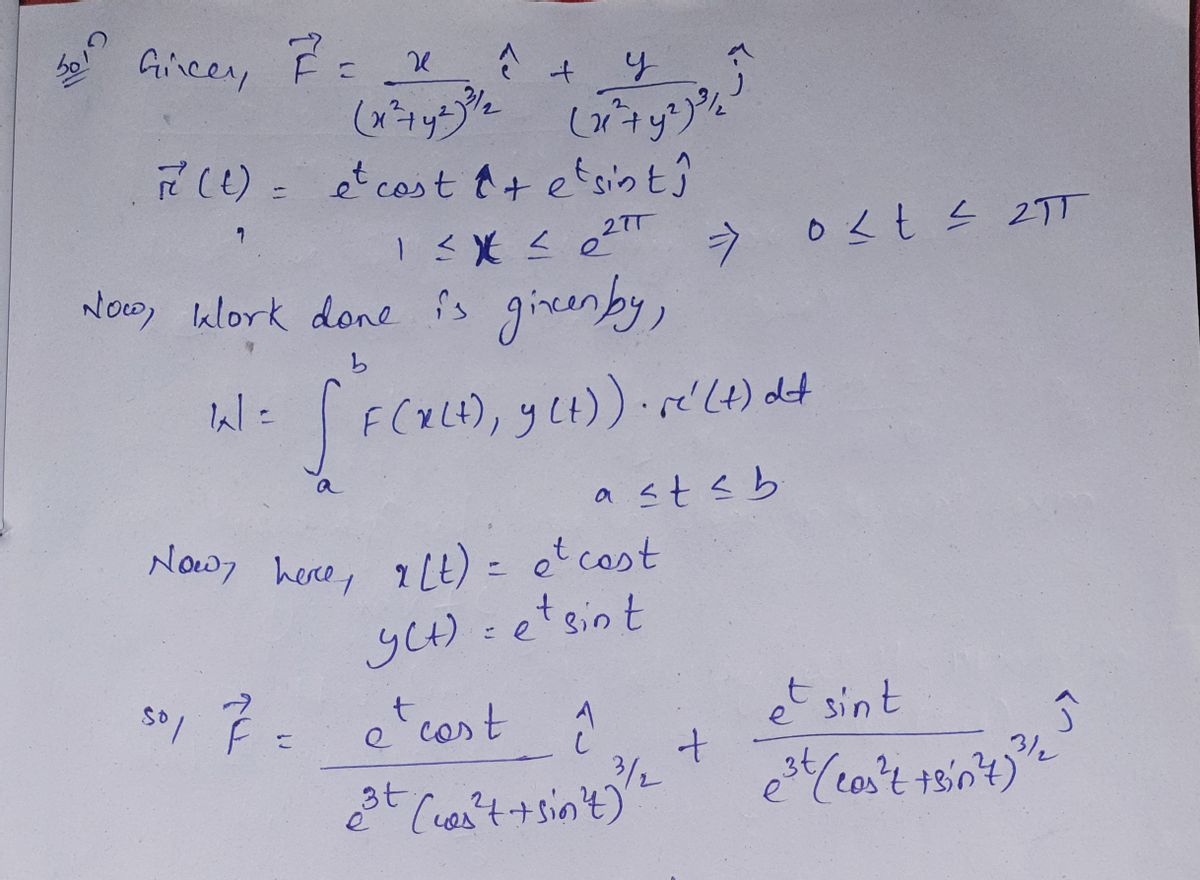 Solⁿ Given, F⃗ = x/(x²+y²)^(3/2) î + y/(x²+y²)^(3/2) ĵ
r⃗(t) = e^t cost î + e^t sint ĵ
1 ≤ x ≤ e^(2π) ⇒ 0 ≤ t ≤ 2π
Now, Work done is given by,
W = ∫_a^b F(x(t), y(t)) · r'(t) dt
a ≤ t ≤ b
Now, here, x(t) = e^t cost
y(t) = e^t sint
so, F⃗ = e^t cost/(e^(3t) (cos²t + sin²t)^(3/2)) î + e^t sint/(e^(3t) (cos²t + sin²t)^(3/2)) ĵ